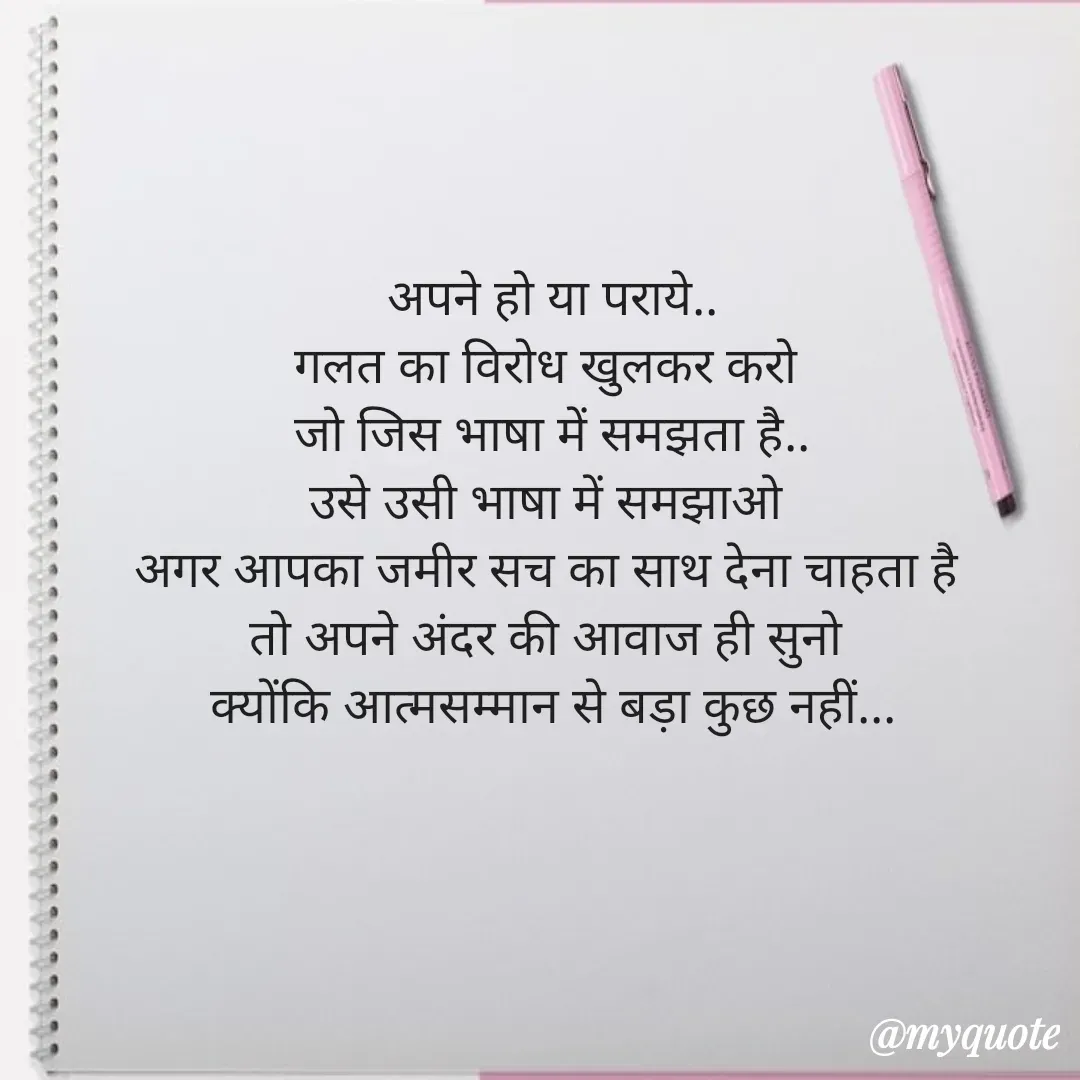 अपने हो या पराये..
गलत का विरोध खुलकर करो
जो जिस भाषा में समझता है..
उसे उसी भाषा में समझाओ
अगर आपका जमीर सच का साथ देना चाहता है
तो अपने अंदर की आवाज ही सुनो
क्योंकि आत्मसम्मान से बड़ा कुछ नहीं...
@myquote